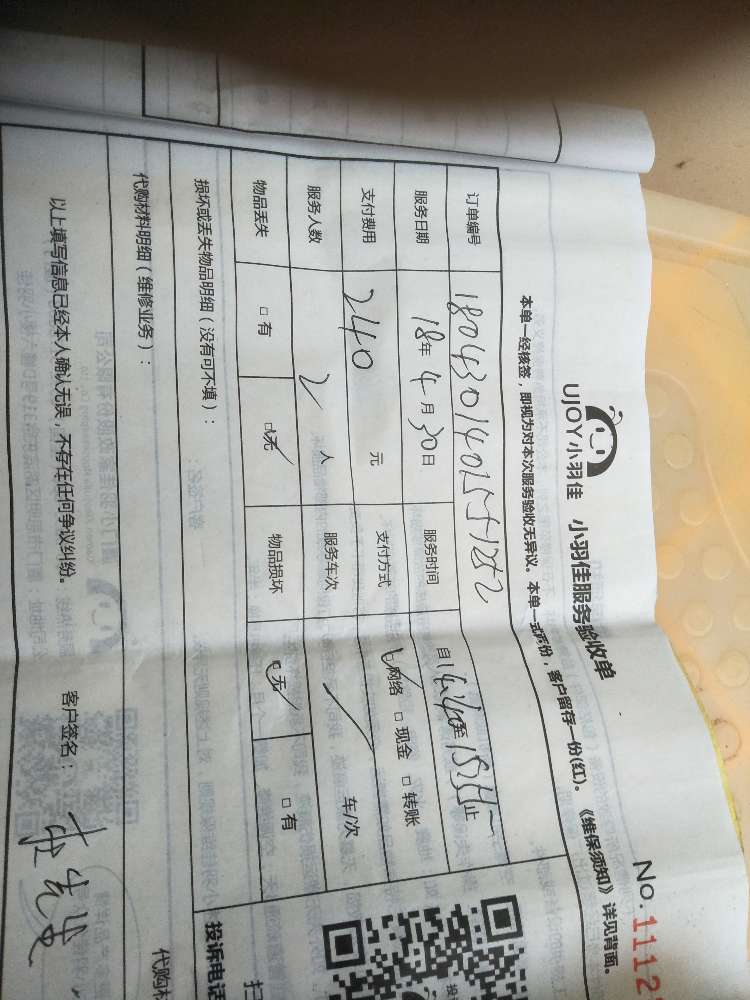 No. 1112
UJOY小羽佳 小羽佳服务验收单
本单一经核签，即视为对本次服务验收无异议。本单一式两份，客户留存一份(红)。《维保须知》详见背面。
订单编号 1804301401551252
服务日期 18年 4月 30日 服务时间 自14:40至15:35止
支付费用 240 元 支付方式 ☑网络 □现金 □转账
服务人数 2 人 服务车次 / 车/次
物品丢失 □有 ☑无 物品损坏 ☑无 □有
损坏或丢失物品明细（没有可不填）：
代购材料明细（维修业务）：
代购材
以上填写信息已经本人确认无误，不存在任何争议纠纷。 客户签名：
投诉电话
扫